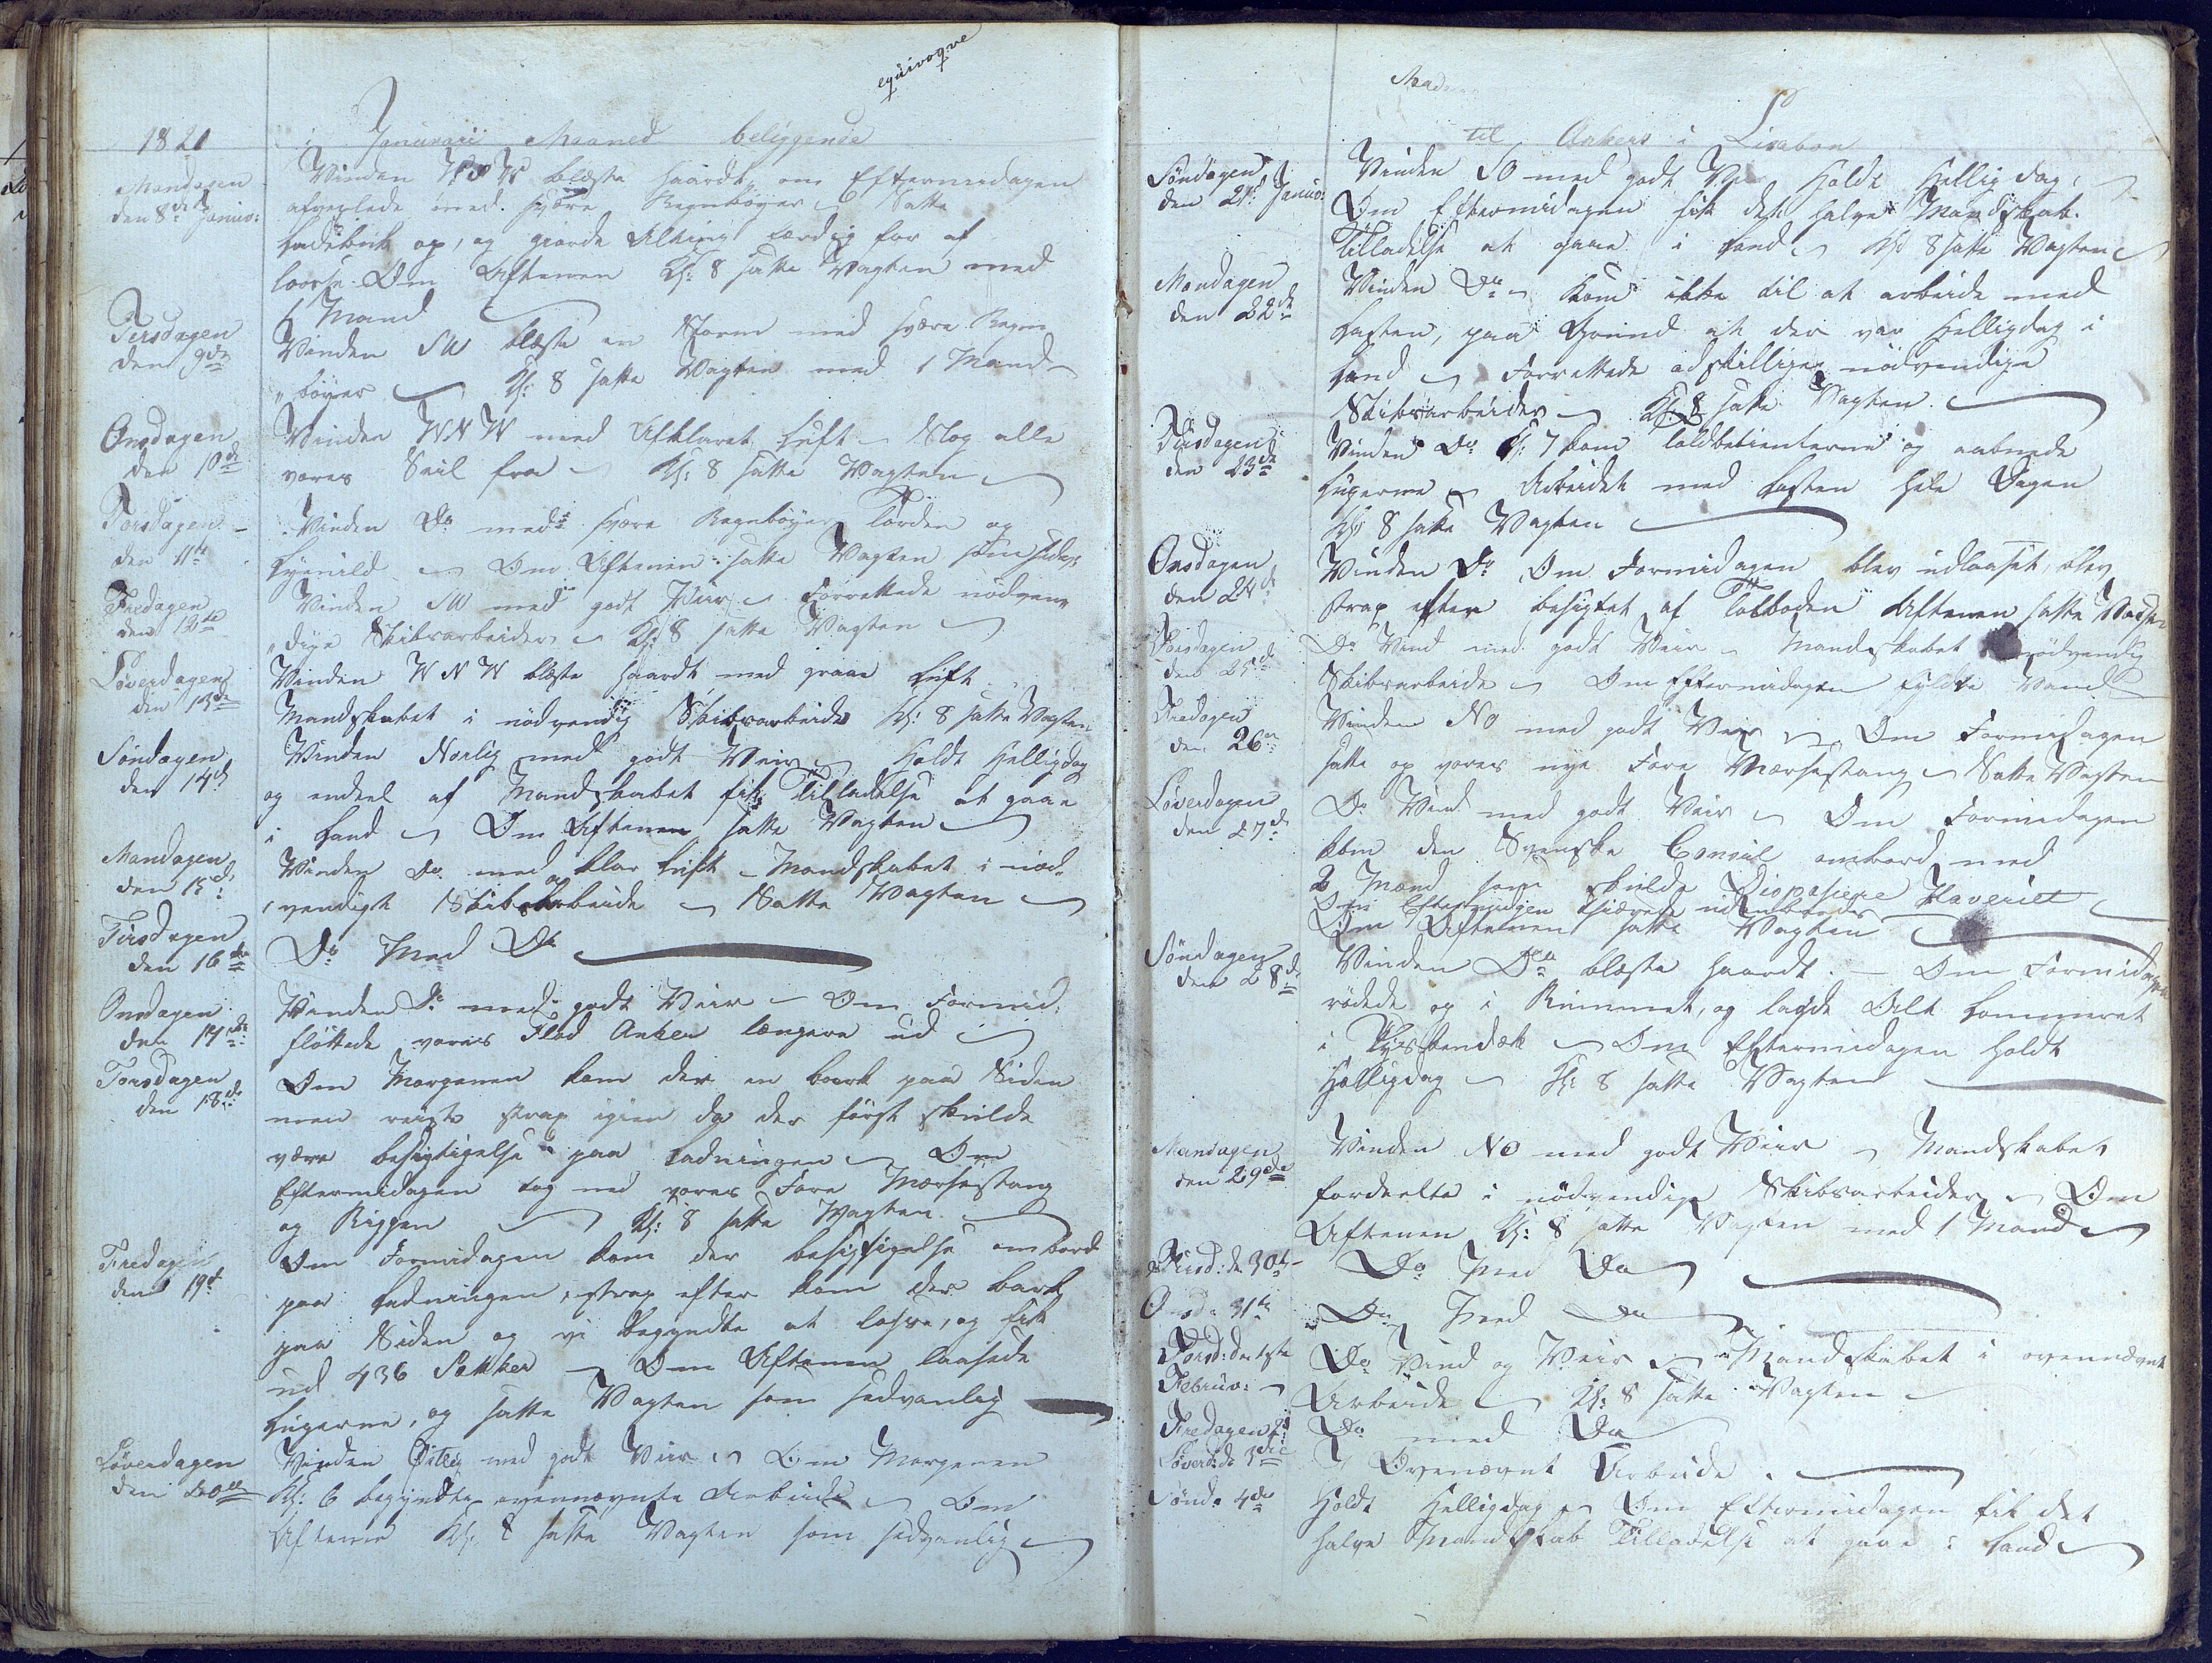 equivoqve
1821 i Januarii Maaned beliggende
Mandagen
den 8de Januar:
Vinden WSW blæste haardt, om Eftermidagen
afvexlede med svære Regnbøyer Satte
Ladebuk op, og giorde Alting færdig for at
losse. Om Aftenen Kl: 8 satte Vagten med
1 Mand
Tirsdagen
den 9de
Vinden SW blæste en Storm med svære Regn
„bøyer Kl: 8 satte Vagten med 1 Mand
Onsdagen
den 10de
Vinden WNW med Afklaret Luft Slog alle
vores Seil fra Kl: 8 satte Vagten
Torsdagen
den 11te
Vinden Do med svære Regnbøyer Torden og
Lynild Om Aftenen satte Vagten
Fredagen
den 12te
Vinden SW med godt Veir Forrettede nödven
„dige Skibsarbeider Kl: 8 satte Vagten
Løverdagen
den 13de
Vinden WNW blæste haardt med graae Luft
Mandskabet i nödvendig Skibsarbeide Kl: 8 satte Vagten
Söndagen
den 14de
Vinden Norlig med godt Veir Holdt Helligdag
og endeel af Mandskabet fik Tilladelse at gaae
i Land Om Aftenen satte Vagten
Mandagen
den 15de
Vinden Do med klar Luft Mandskabet i nöd-
vendigt Skibsarbeide Satte Vagten
Tirsdagen
den 16de
Do Med Do
Onsdagen
den 17de
Vinden Do med godt Veir Om Formid:
fløttede vores Flod Anker længere ud
Torsdagen
den 18de
Om Morgenen kom der en bark paa Siden
men reiste strax igien da der först skulde
være besigtigelse paa Ladningen Om
Eftermidagen tog ned vores Fore Mærsestang
og Riggen Kl: 8 satte Vagten
Fredagen
den 19de
Om Formidagen kom der besigtigelse ombord
paa Ladningen, strax efter kom der bark
paa Siden og vi begyndte at losse, og fik
ud 436 Sækker Om Aftenen laasede
Lugerne, og satte Vagten som sædvanlig
Løverdagen
den 20de
Vinden Östlig med godt Veir Om Morgenen
Kl: 6 begyndte ovennævnte Arbeide Om
Aftenen Kl: 8 satte Vagten som sædvanlig
til Ankers i Lisabon
Söndagen
den 21de Januar:
Vinden SO med godt Veir Holdt Hellig dag,
Om Eftermidagen fik det halve Mandskab
Tilladelse at gaae i Land Kl 8 satte Vagten
Mandagen
den 22de
Vinden Do Kom ikke til at arbeide med
Lasten, paa Grund at der var Helligdag i
Land Forrettede adskillige nödvendige
Skibsarbeider Kl: 8 satte Vagten
Tirsdagen
den 23de
Vinden Do Kl: 7 kom Toldbetienterne og aabnede
Lugerne Arbeidet med Lasten hele Dagen
Kl 8 satte Vagten
Onsdagen
den 24de
Vinden Do, Om Formidagen blev udlosset, blev
strax efter besigtet af Tolboden Aftenen satte Vagten
Torsdagen
den 25de
Do Vind med godt Veir Mandskabet nödvendig
Skibsarbeide Om Eftermidagen fyldte Vand
Fredagen
den 26de
Vinden NO med godt Veir Om Formidagen
satte op vores nye Fore Mærsestang Satte Vagten
Løverdagen
den 27de
Do Vind med godt Veir Om Formidagen
kom den Svenske Consul ombord med
2 Mænd som skulde Dispachere Haveriet
Om Eftermidagen
Om Aftenen satte Vagten
Söndagen
den 28de
Vinden Do blæste haardt. Om Formidagen
rödede op i Rummet, og lagde Alt Tømmeret
i Om Eftermidagen holdt
Helligdag Kl: 8 satte Vagten
Mandagen
den 29de
Vinden NO med godt Veir Mandskabet
fordeelte i nödvendige Skibsarbeider Om
Aftenen Kl: 8 satte Vagten med 1 Mand
Tirsd: d. 30te
Do Med Do
Onsd: 31te
Do Med Do
Torsd: den 1ste
Februar:
Do Vind og Veir Mandskabet i ovennævnt
Arbeide Kl: 8 satte Vagten
Fredagen 2:
Do med Do
Løverd: d. 3die
Ovenævnt Arbeide
Sönd: 4de
Holdt Helligdag Om Eftermidagen fik det
halve Mandskab Tilladelse at gaae i Land